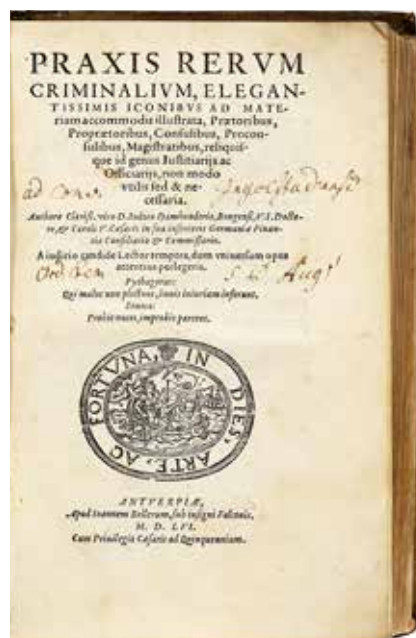 PRAXIS RERVM
CRIMINALIVM, ELEGAN-
TISSIMIS ICONIBVS AD MATE-
riam accommodis illustrata, Prætoribus,
Proprætoribus, Consulibus, Procon-
sulibus, Magistratibus, reliquis-
que id genus Iustitiarijs ac
Officiarijs, non modo
vtilis sed & ne-
cessaria.
ad
Ingolstadiensis
Authore Clariss. viro D. Iodoco Damhouderio, Brugensi, V. I. Docto-
re, & Caroli V. Cæsaris in sua inferiore Germania Finan-
cia Consiliario & Commissario.
A iudicio candide Lector tempera, dum vniuersum opus
attentius perlegeris.
Ord
S. Aug
Pythagoras:
Qui malos non plectunt, bonis iniuriam inferunt.
Seneca:
Probis nocet, improbis parcens.
FORTVNA, IN DIES, ARTE, AC
ANTVERPIÆ,
Apud Ioannem Bellerum, sub insigni Falconis,
M. D. LVI.
Cum Priuilegio Cæsaris ad Quinquennium.